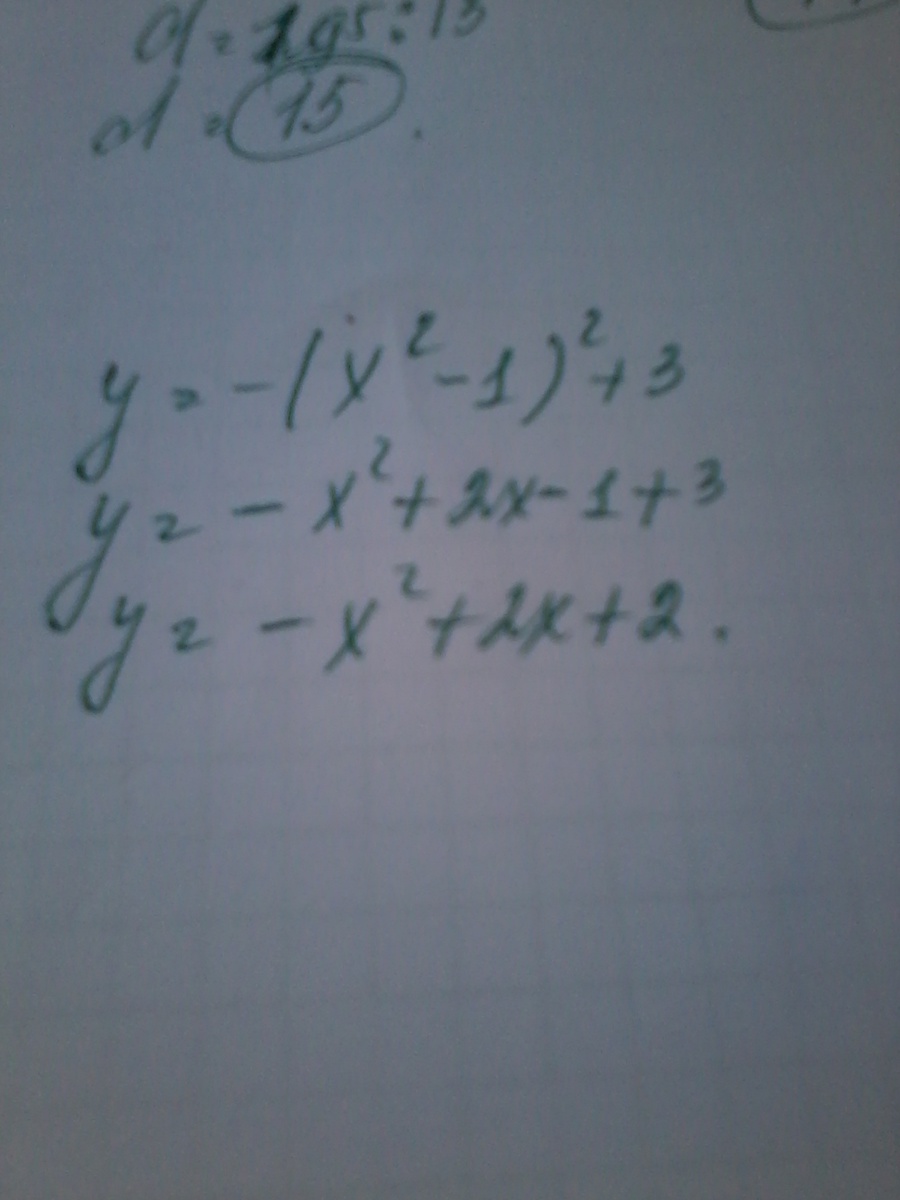 d = 195 : 13
d = 15.
y = -(x² - 1)² + 3
y = - x² + 2x - 1 + 3
y = - x² + 2x + 2.